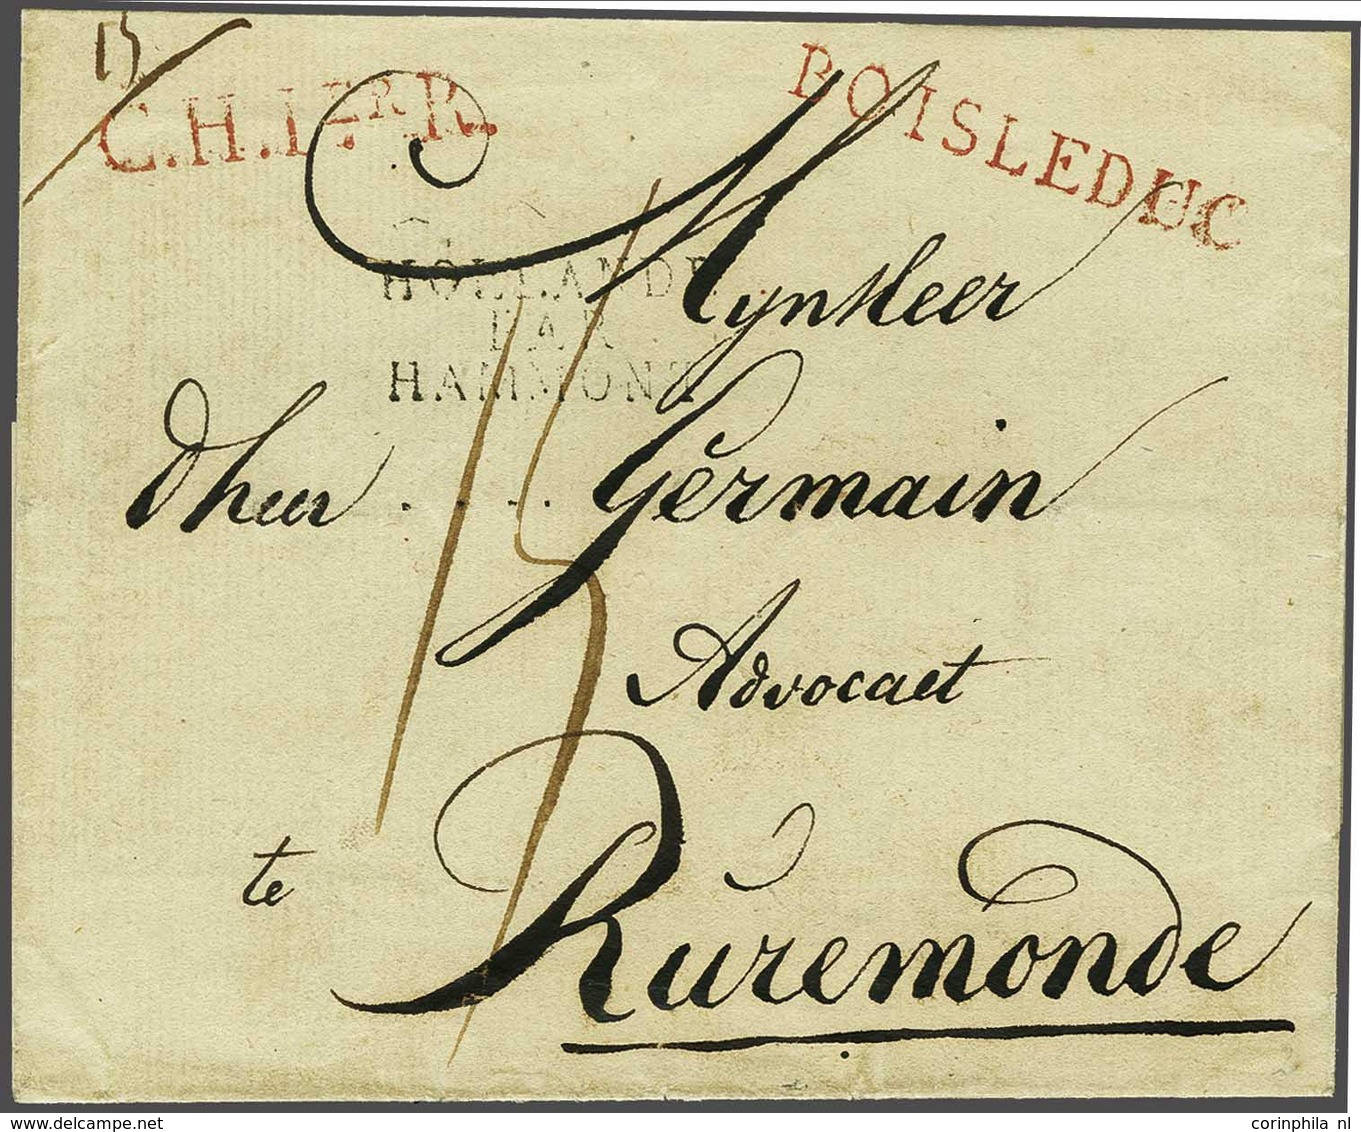 15
C.H.1ER.R.
BOISLEDUC
HOLLANDE
PAR
HAMMONT
Mynheer
dheer . . . . Germain
15
Advocaet
te
Ruremonde
corinphila nl